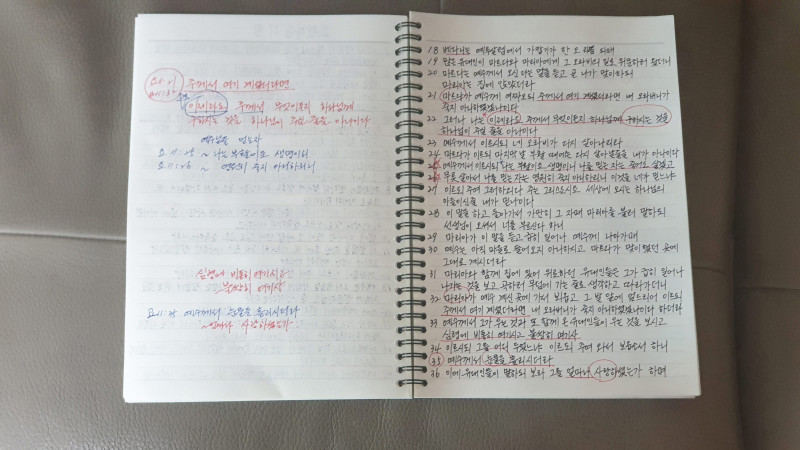 주께서 여기 계셨더라면
이제라도 주께서 무엇이든지 하나님께
구하시는 것을 하나님이 주실 줄을 아나이다
예수님을 믿는자
요 11:25 ~ 나는 부활이요 생명이니
심령에 비통히 여기시고
불쌍히 여기사
요 11:35 예수께서 눈물을 흘리시더라
사랑하셨는가
18 베다니는 예루살렘에서 가깝기가 한 오 리쯤 되매
19 많은 유대인이 마르다와 마리아에게 그 오라비의 일로 위문하러 왔더니
20 마르다는 예수께서 오신다는 말을 듣고 곧 나가 맞이하되
마리아는 집에 앉았더라
21 마르다가 예수께 여짜오되 주께서 여기 계셨더라면 내 오라버니가
죽지 아니하였겠나이다
22 그러나 나는 이제라도 주께서 무엇이든지 하나님께 구하시는 것을
하나님이 주실 줄을 아나이다
23 예수께서 이르시되 네 오라비가 다시 살아나리라
24 마르다가 이르되 마지막 날 부활 때에는 다시 살아날 줄을 내가 아나이다
25 예수께서 이르시되 나는 부활이요 생명이니 나를 믿는 자는 죽어도 살겠고
26 무릇 살아서 나를 믿는 자는 영원히 죽지 아니하리니 이것을 네가 믿느냐
27 이르되 주여 그러하외다 주는 그리스도시요 세상에 오시는 하나님의
아들이신 줄 내가 믿나이다
28 이 말을 하고 돌아가서 가만히 그 자매 마리아를 불러 말하되
선생님이 오셔서 너를 부르신다 하니
29 마리아가 이 말을 듣고 급히 일어나 예수께 나아가매
30 예수는 아직 마을로 들어오지 아니하시고 마르다가 맞이했던 곳에
그대로 계시더라
31 마리아와 함께 집에 있어 위로하던 유대인들은 그가 급히 일어나
나가는 것을 보고 곡하러 무덤에 가는 줄로 생각하고 따라가더니
32 마리아가 예수 계신 곳에 가서 뵈옵고 그 발 앞에 엎드리어 이르되
주께서 여기 계셨더라면 내 오라버니가 죽지 아니하였겠나이다 하더라
33 예수께서 그가 우는 것과 또 함께 온 유대인들이 우는 것을 보시고
심령에 비통히 여기시고 불쌍히 여기사
34 이르시되 그를 어디 두었느냐 이르되 주여 와서 보옵소서 하니
35 예수께서 눈물을 흘리시더라
36 이에 유대인들이 말하되 보라 그를 얼마나 사랑하셨는가 하며